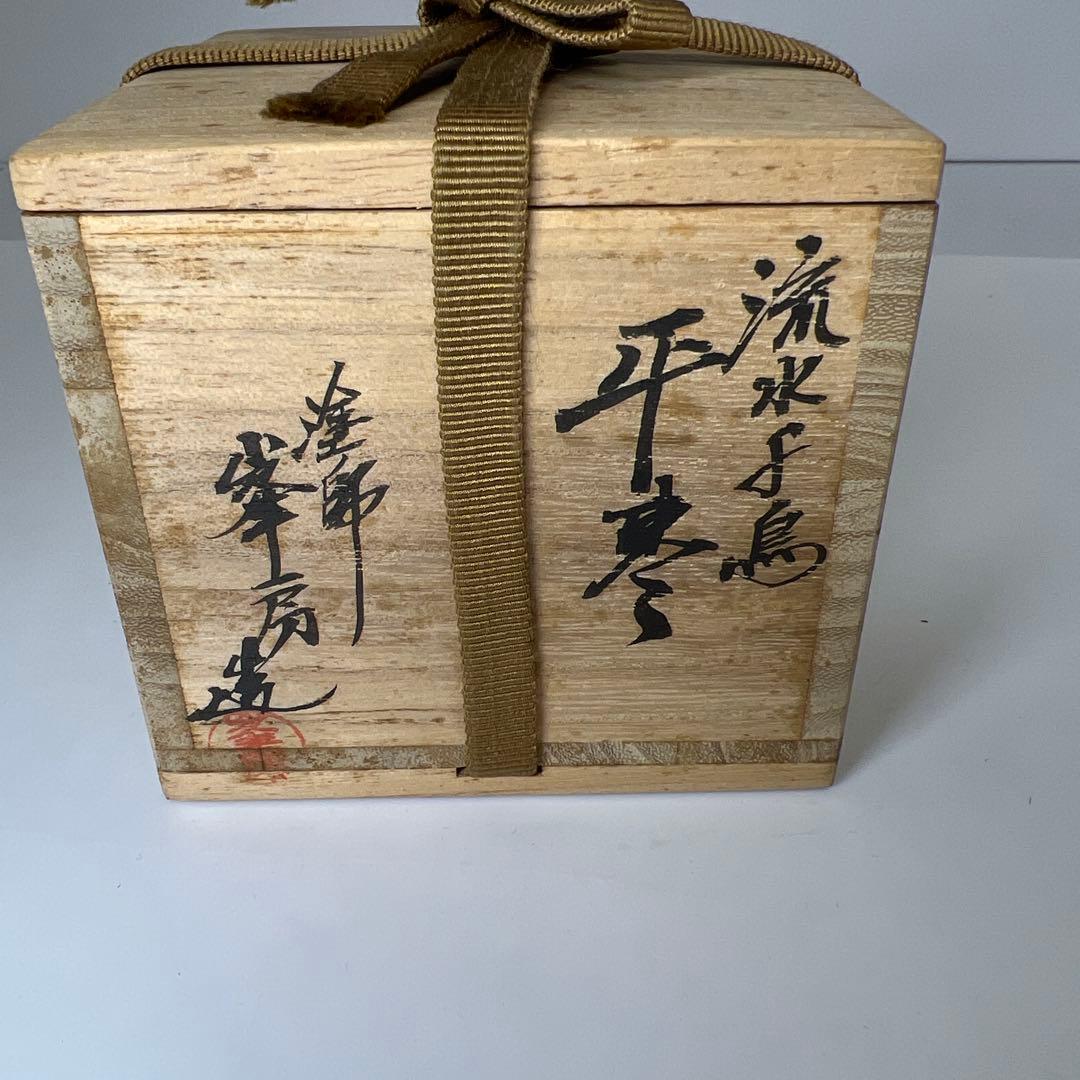 流水千鳥
平棗
塗師
峯月房造